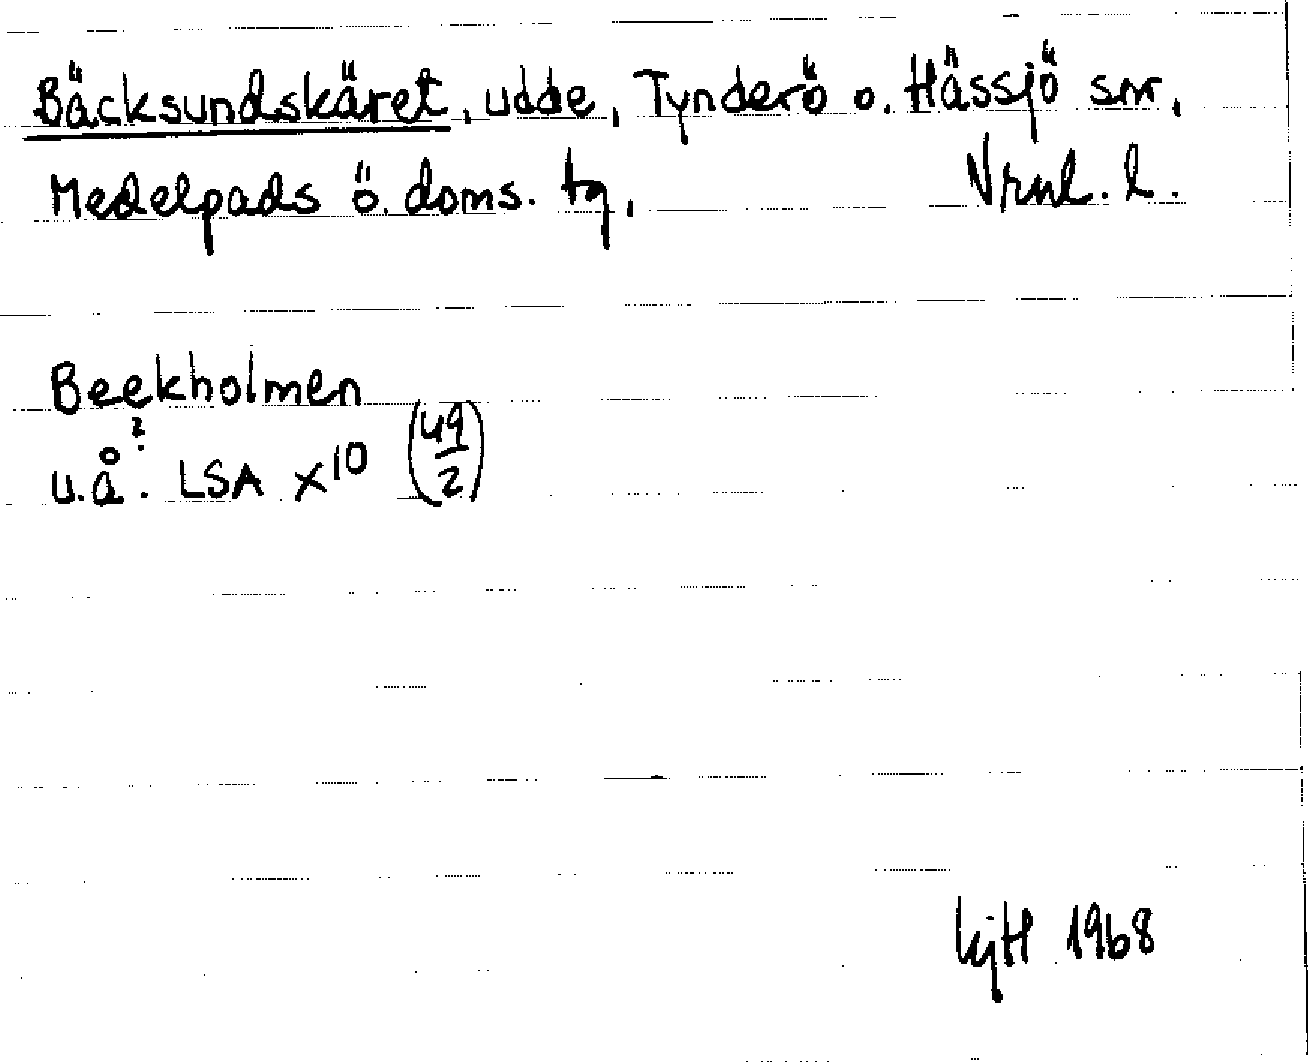 Bäcksundskäret, udde, Tynderö o. Hässjö snr,
Medelpads ö. doms. tg, Vrnl. l.
Beekholmen
u.å.? LSA X10 (49/2)
1968